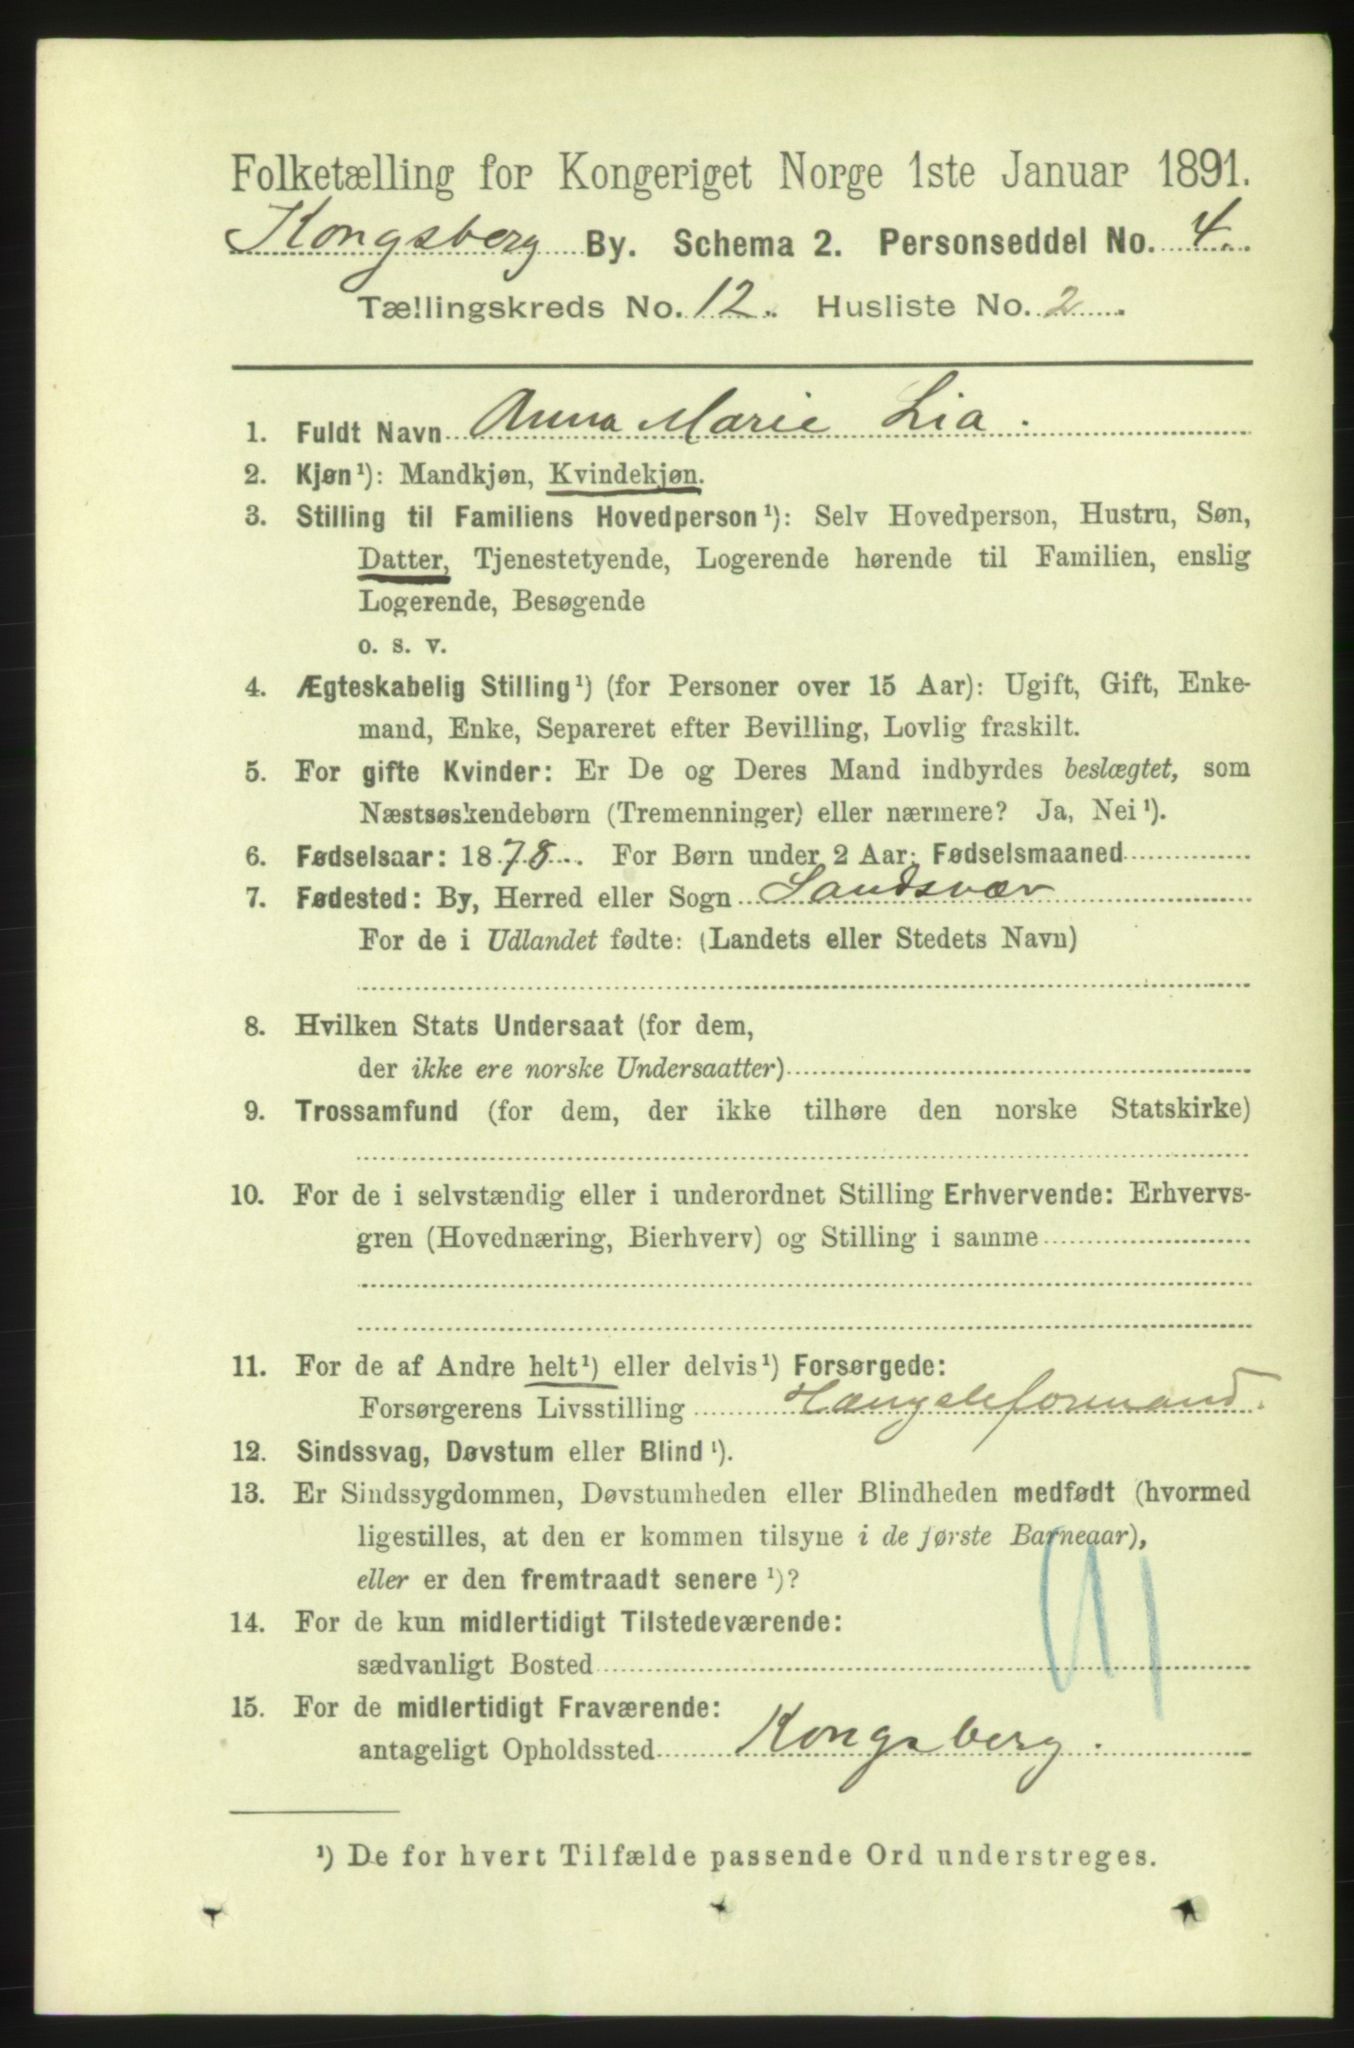 Folketælling for Kongeriget Norge 1ste Januar 1891.
Kongsberg By. Schema 2. Personseddel No. 4.
Tællingskreds No. 12. Husliste No. 2
1. Fuldt Navn Anna Marie Lia.
2. Kjøn¹): Mandkjøn, Kvindekjøn.
3. Stilling til Familiens Hovedperson¹): Selv Hovedperson, Hustru, Søn,
Datter, Tjenestetyende, Logerende hørende til Familien, enslig
Logerende, Besøgende
o. s. v.
4. Ægteskabelig Stilling¹) (for Personer over 15 Aar): Ugift, Gift, Enke-
mand, Enke, Separeret efter Bevilling, Lovlig fraskilt.
5. For gifte Kvinder: Er De og Deres Mand indbyrdes beslægtet, som
Næstsøskendebørn (Tremenninger) eller nærmere? Ja, Nei¹).
6. Fødselsaar: 1878. For Børn under 2 Aar: Fødselsmaaned
7. Fødested: By, Herred eller Sogn Sandsvær
For de i Udlandet fødte: (Landets eller Stedets Navn)
8. Hvilken Stats Undersaat (for dem,
der ikke ere norske Undersaatter)
9. Trossamfund (for dem, der ikke tilhøre den norske Statskirke)
10. For de i selvstændig eller i underordnet Stilling Erhvervende: Erhvervs-
gren (Hovednæring, Bierhverv) og Stilling i samme
11. For de af Andre helt¹) eller delvis¹) Forsørgede:
Forsørgerens Livsstilling Hængsleformand.
12. Sindssvag, Døvstum eller Blind¹).
13. Er Sindssygdommen, Døvstumheden eller Blindheden medfødt (hvormed
ligestilles, at den er kommen tilsyne i de første Barneaar),
eller er den fremtraadt senere¹)?
14. For de kun midlertidigt Tilstedeværende:
sædvanligt Bosted
15. For de midlertidigt Fraværende:
antageligt Opholdssted Kongsberg.
¹) De for hvert Tilfælde passende Ord understreges.